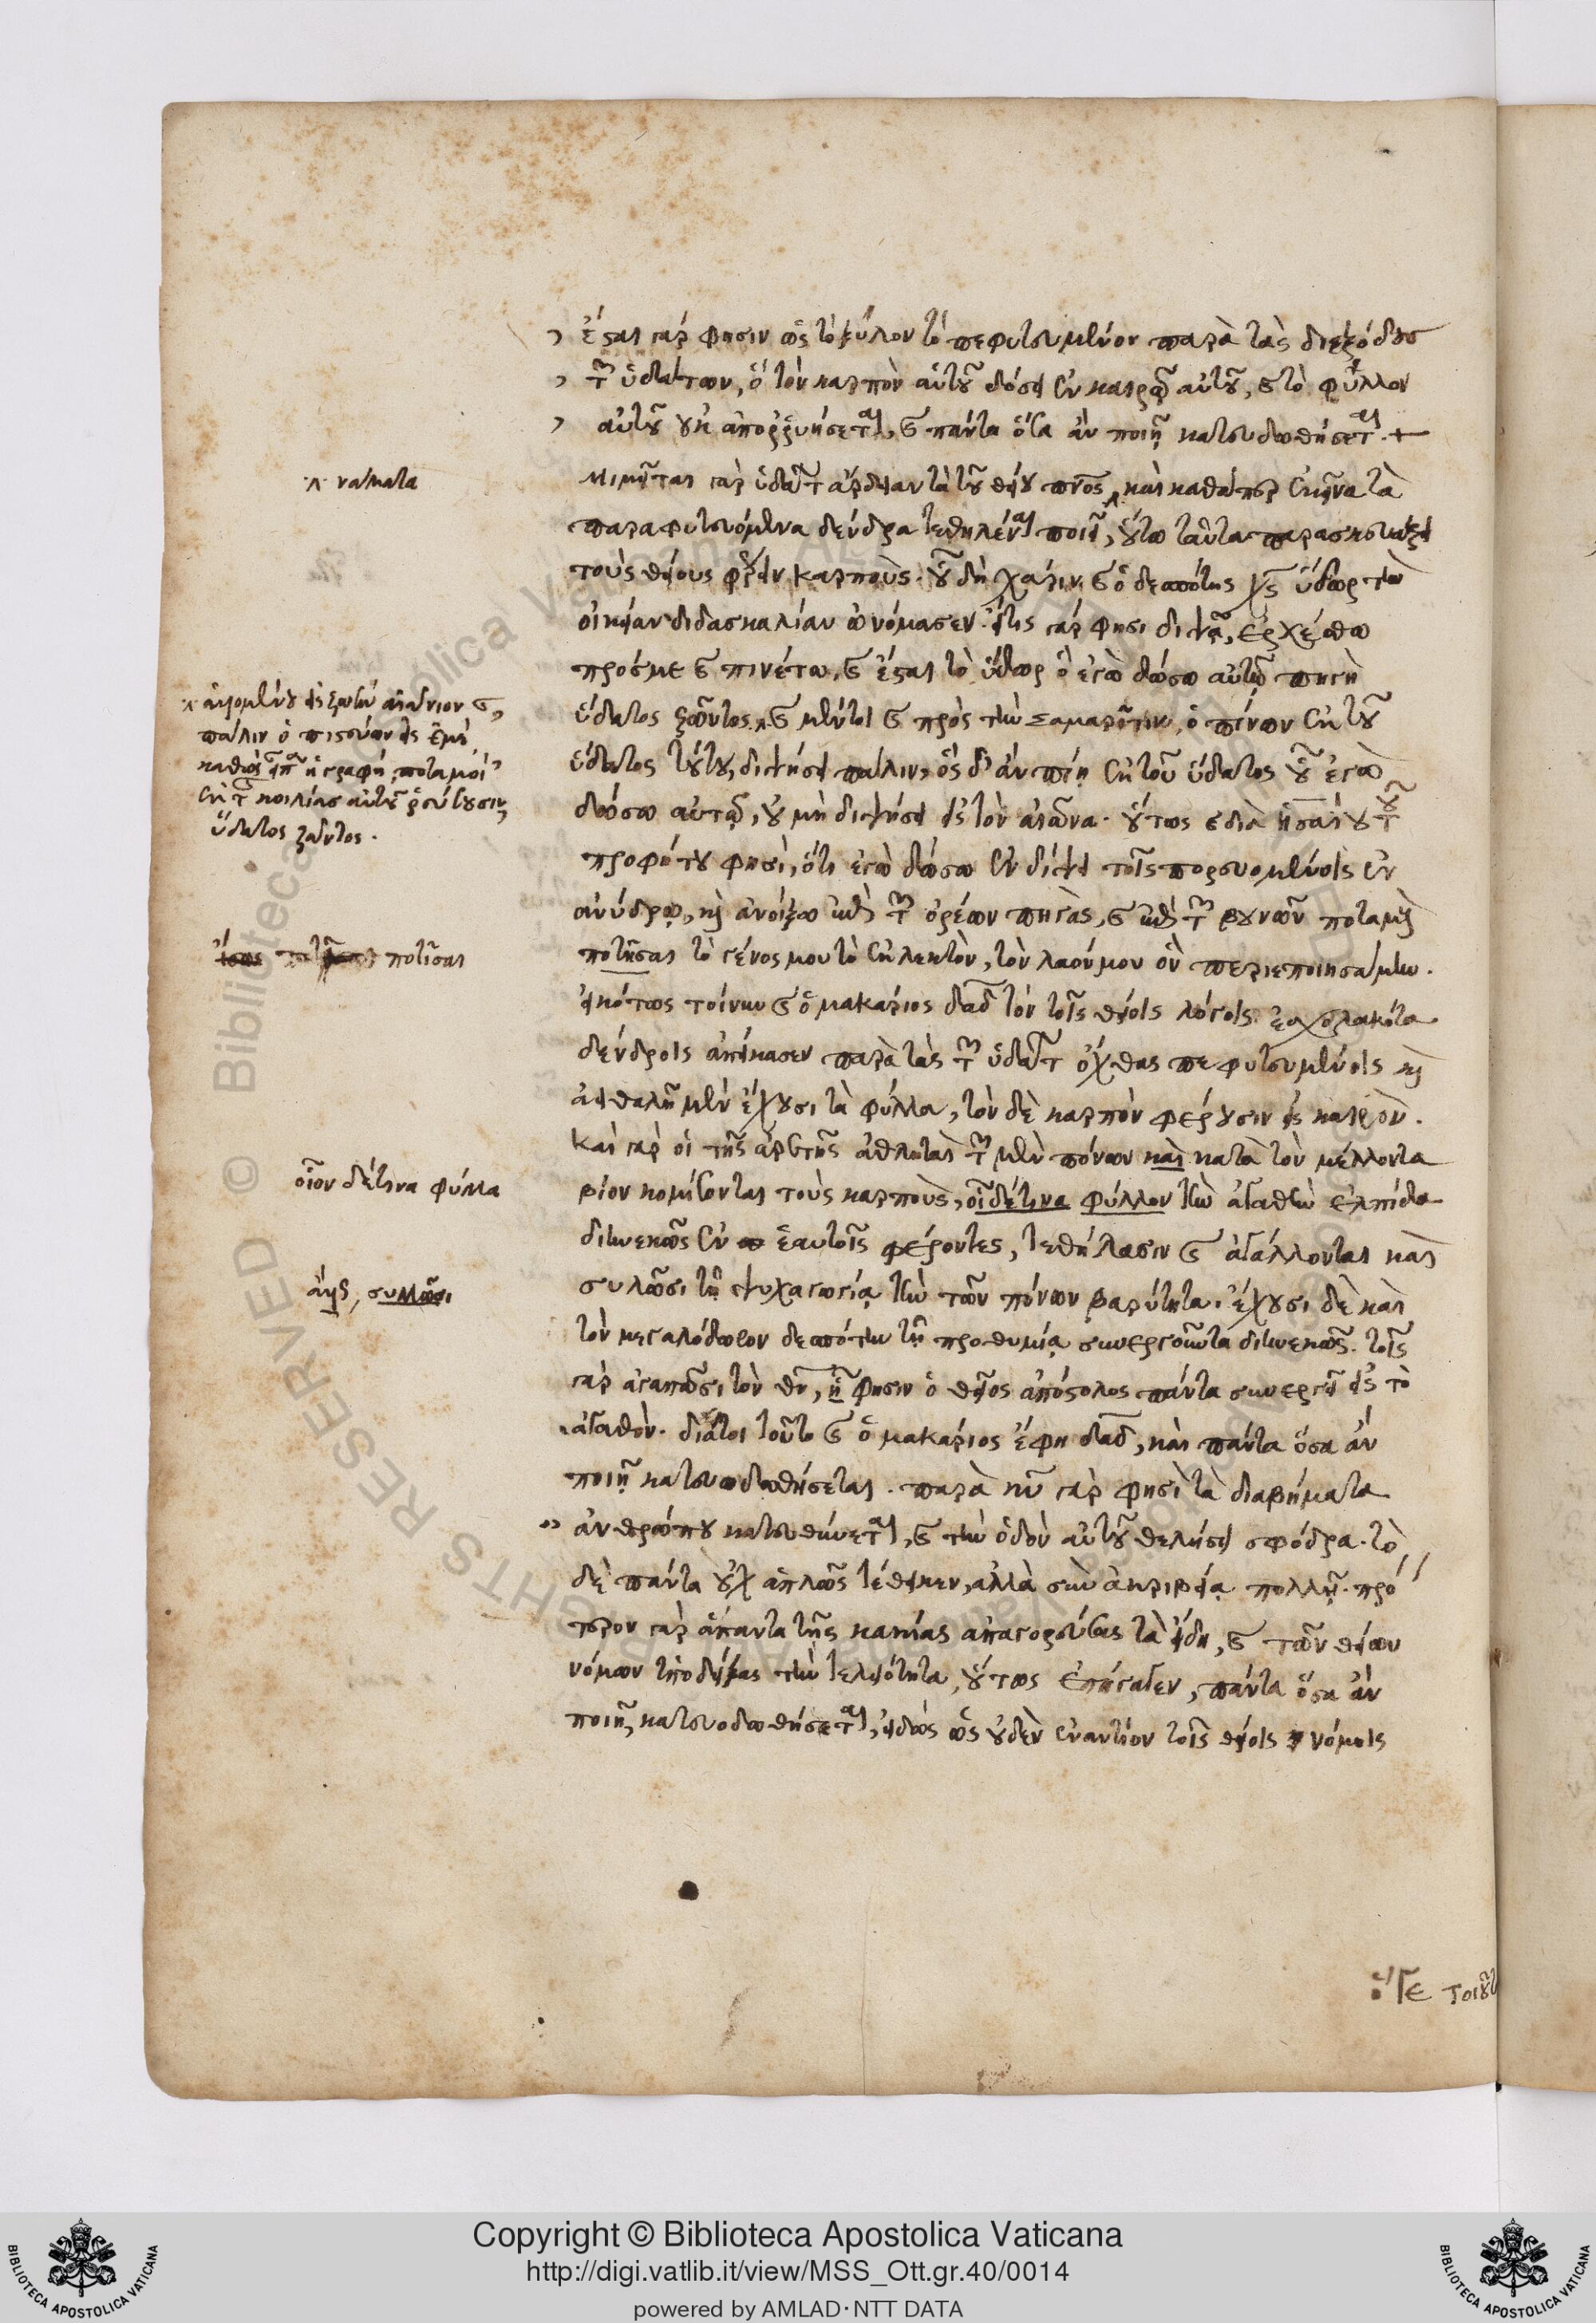 ἔσται γάρ φησιν ὡς τὸ ξύλον τὸ πεφυτευμένον παρὰ τὰς διεξόδους
τῶν ὑδάτων, ὃ τὸν καρπὸν αὐτοῦ δώσει ἐν καιρῷ αὐτοῦ, καὶ τὸ φύλλον
αὐτοῦ οὐκ ἀπορρυήσεται, καὶ πάντα ὅσα ἂν ποιῇ κατευοδωθήσεται +
μιμεῖται γὰρ ὑδάτων ἀρδείαν τὰ τοῦ θείου πνος, καὶ καθάπερ ἐκεῖνα τὰ
·λ· νάματα
παραφυτευόμενα δένδρα τεθηλέναι ποιεῖ, οὕτω ταῦτα παρασκευάζει
τοὺς θείους φέρειν καρπούς. οὗ δὴ χάριν, καὶ ὁ δεσπότης χς ὕδωρ τὴν
οἰκείαν διδασκαλίαν ὠνόμασεν. εἴτις γάρ φησι διψᾷ, ἐρχέσθω
πρός με καὶ πινέτω, καὶ ἔσται τὸ ὕδωρ ὃ ἐγὼ δώσω αὐτῷ πηγὴ
ὕδατος ζῶντος. καὶ μέντοι καὶ πρὸς τὴν σαμαρεῖτιν, ὁ πίνων ἐκ τοῦ
λ ἁλομένου εἰς ζωὴν αἰώνιον καὶ,
πάλιν ὁ πιστεύων εἰς ἐμὲ
καθὼς εἶπεν ἡ γραφή, ποταμοὶ
ἐκ τῆς κοιλίας αὐτοῦ ῥεύσουσιν
ὕδατος ζῶντος.
ὕδατος τούτου, διψήσει πάλιν, ὃς δ' ἂν πίῃ ἐκ τοῦ ὕδατος οὗ ἐγὼ
δώσω αὐτῷ, οὐ μὴ διψήσει εἰς τὸν αἰῶνα. οὕτως καὶ διὰ ἡσαΐου τοῦ
προφήτου φησί, ὅτι ἐγὼ δώσω ἐν δίψει τοῖς πορευομένοις ἐν
ἀνύδρῳ, καὶ ἀνοίξω ἐκ τῶν ὀρέων πηγάς, καὶ ἐκ τῶν βουνῶν ποταμοὺς
ποτῆσαι τὸ γένος μου τὸ ἐκλεκτὸν, τὸν λαόν μου ὃν περιεποιησάμην.
ποτῖσαι
εἰκότως τοίνυν καὶ ὁ μακάριος δαδ τὸν τοῖς θείοις λόγοις ἐσχολακότα
δένδροις ἀπείκασεν παρὰ τὰς τῶν ὑδάτων ὄχθας πεφυτευμένοις καὶ
ἀειθαλῆ μὲν ἔχουσι τὰ φύλλα, τὸν δὲ καρπὸν φέρουσιν εἰς καιρόν.
καὶ γὰρ οἱ τῆς ἀρετῆς ἀθληταὶ τῶν μὲν πόνων καὶ κατὰ τὸν μέλλοντα
βίον κομίζονται τοὺς καρποὺς, οἷα δέτινα φύλλον τὴν ἀγαθὴν ἐλπίδα
οἷον δέτινα φύλλα
διηνεκῶς ἐν ἑαυτοῖς φέροντες, τεθήλασιν καὶ ἀγάλλονται καὶ
συλῶσι τῇ ψυχαγωγίᾳ τὴν τῶν πόνων βαρύτητα. ἔχουσι δὲ καὶ
συλλῶσι
τὸν μεγαλόδωρον δεσπότην τῇ προθυμίᾳ συνεργοῦντα διηνεκῶς. τοῖς
γὰρ ἀγαπῶσι τὸν θν, ᾗ φησιν ὁ θεῖος ἀπόστολος πάντα συνεργεῖ εἰς τὸ
ἀγαθόν. διάτοι τοῦτο καὶ ὁ μακάριος ἔφη δαδ, καὶ πάντα ὅσα ἂν
ποιῇ κατευοδωθήσεται. παρὰ κυ γάρ φησὶ τὰ διαβήματα
ἀνθρώπου κατευθύνεται, καὶ τὴν ὁδὸν αὐτοῦ θελήσει σφόδρα. τὸ
δὲ πάντα οὐχ ἁπλῶς τέθεικεν, ἀλλὰ σὺν ἀκριβείᾳ πολλῇ. πρό
τερον γὰρ ἅπαντα τῆς κακίας ἀπαγορεύσας τὰ εἴδη, καὶ τῶν θείων
νόμων ὑποδείξας τὴν τελειότητα, οὕτως ἐπήγαγεν, πάντα ὅσα ἂν
ποιῇ, κατευοδωθήσεται, εἰδὼς ὡς οὐδὲν ἐναντίον τοῖς θείοις νόμοις
ὅγε τοιοῦτ
Copyright © Biblioteca Apostolica Vaticana
http://digi.vatlib.it/view/MSS_Ott.gr.40/0014
powered by AMLAD·NTT DATA